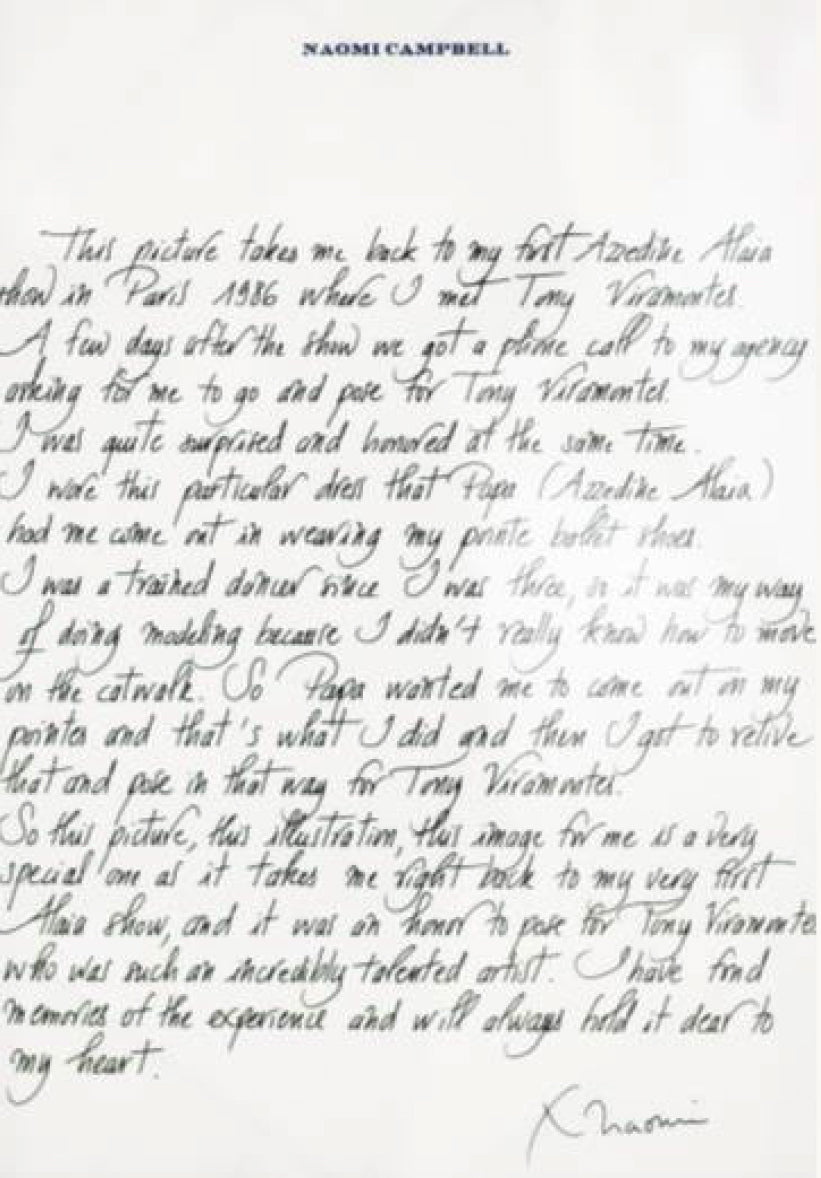 NAOMI CAMPBELL
This picture takes me back to my first Azzedine Alaia
show in Paris 1986 where I met Tony Viramontes.
A few days after the show we got a phone call to my agency
asking for me to go and pose for Tony Viramontes.
I was quite surprised and honored at the same time.
I wore this particular dress that Papa (Azzedine Alaia)
had me come out in wearing my pointe ballet shoes.
I was a trained dancer since I was three, so it was my way
of doing modeling because I didn't really know how to move
on the catwalk. So Papa wanted me to come out on my
pointes and that's what I did and then I got to relive
that and pose in that way for Tony Viramontes.
So this picture, this illustration, this image for me is a very
special one as it takes me right back to my very first
Alaia show, and it was an honor to pose for Tony Viramontes
who was such an incredibly talented artist. I have fond
memories of the experience and will always hold it dear to
my heart.
X Naomi